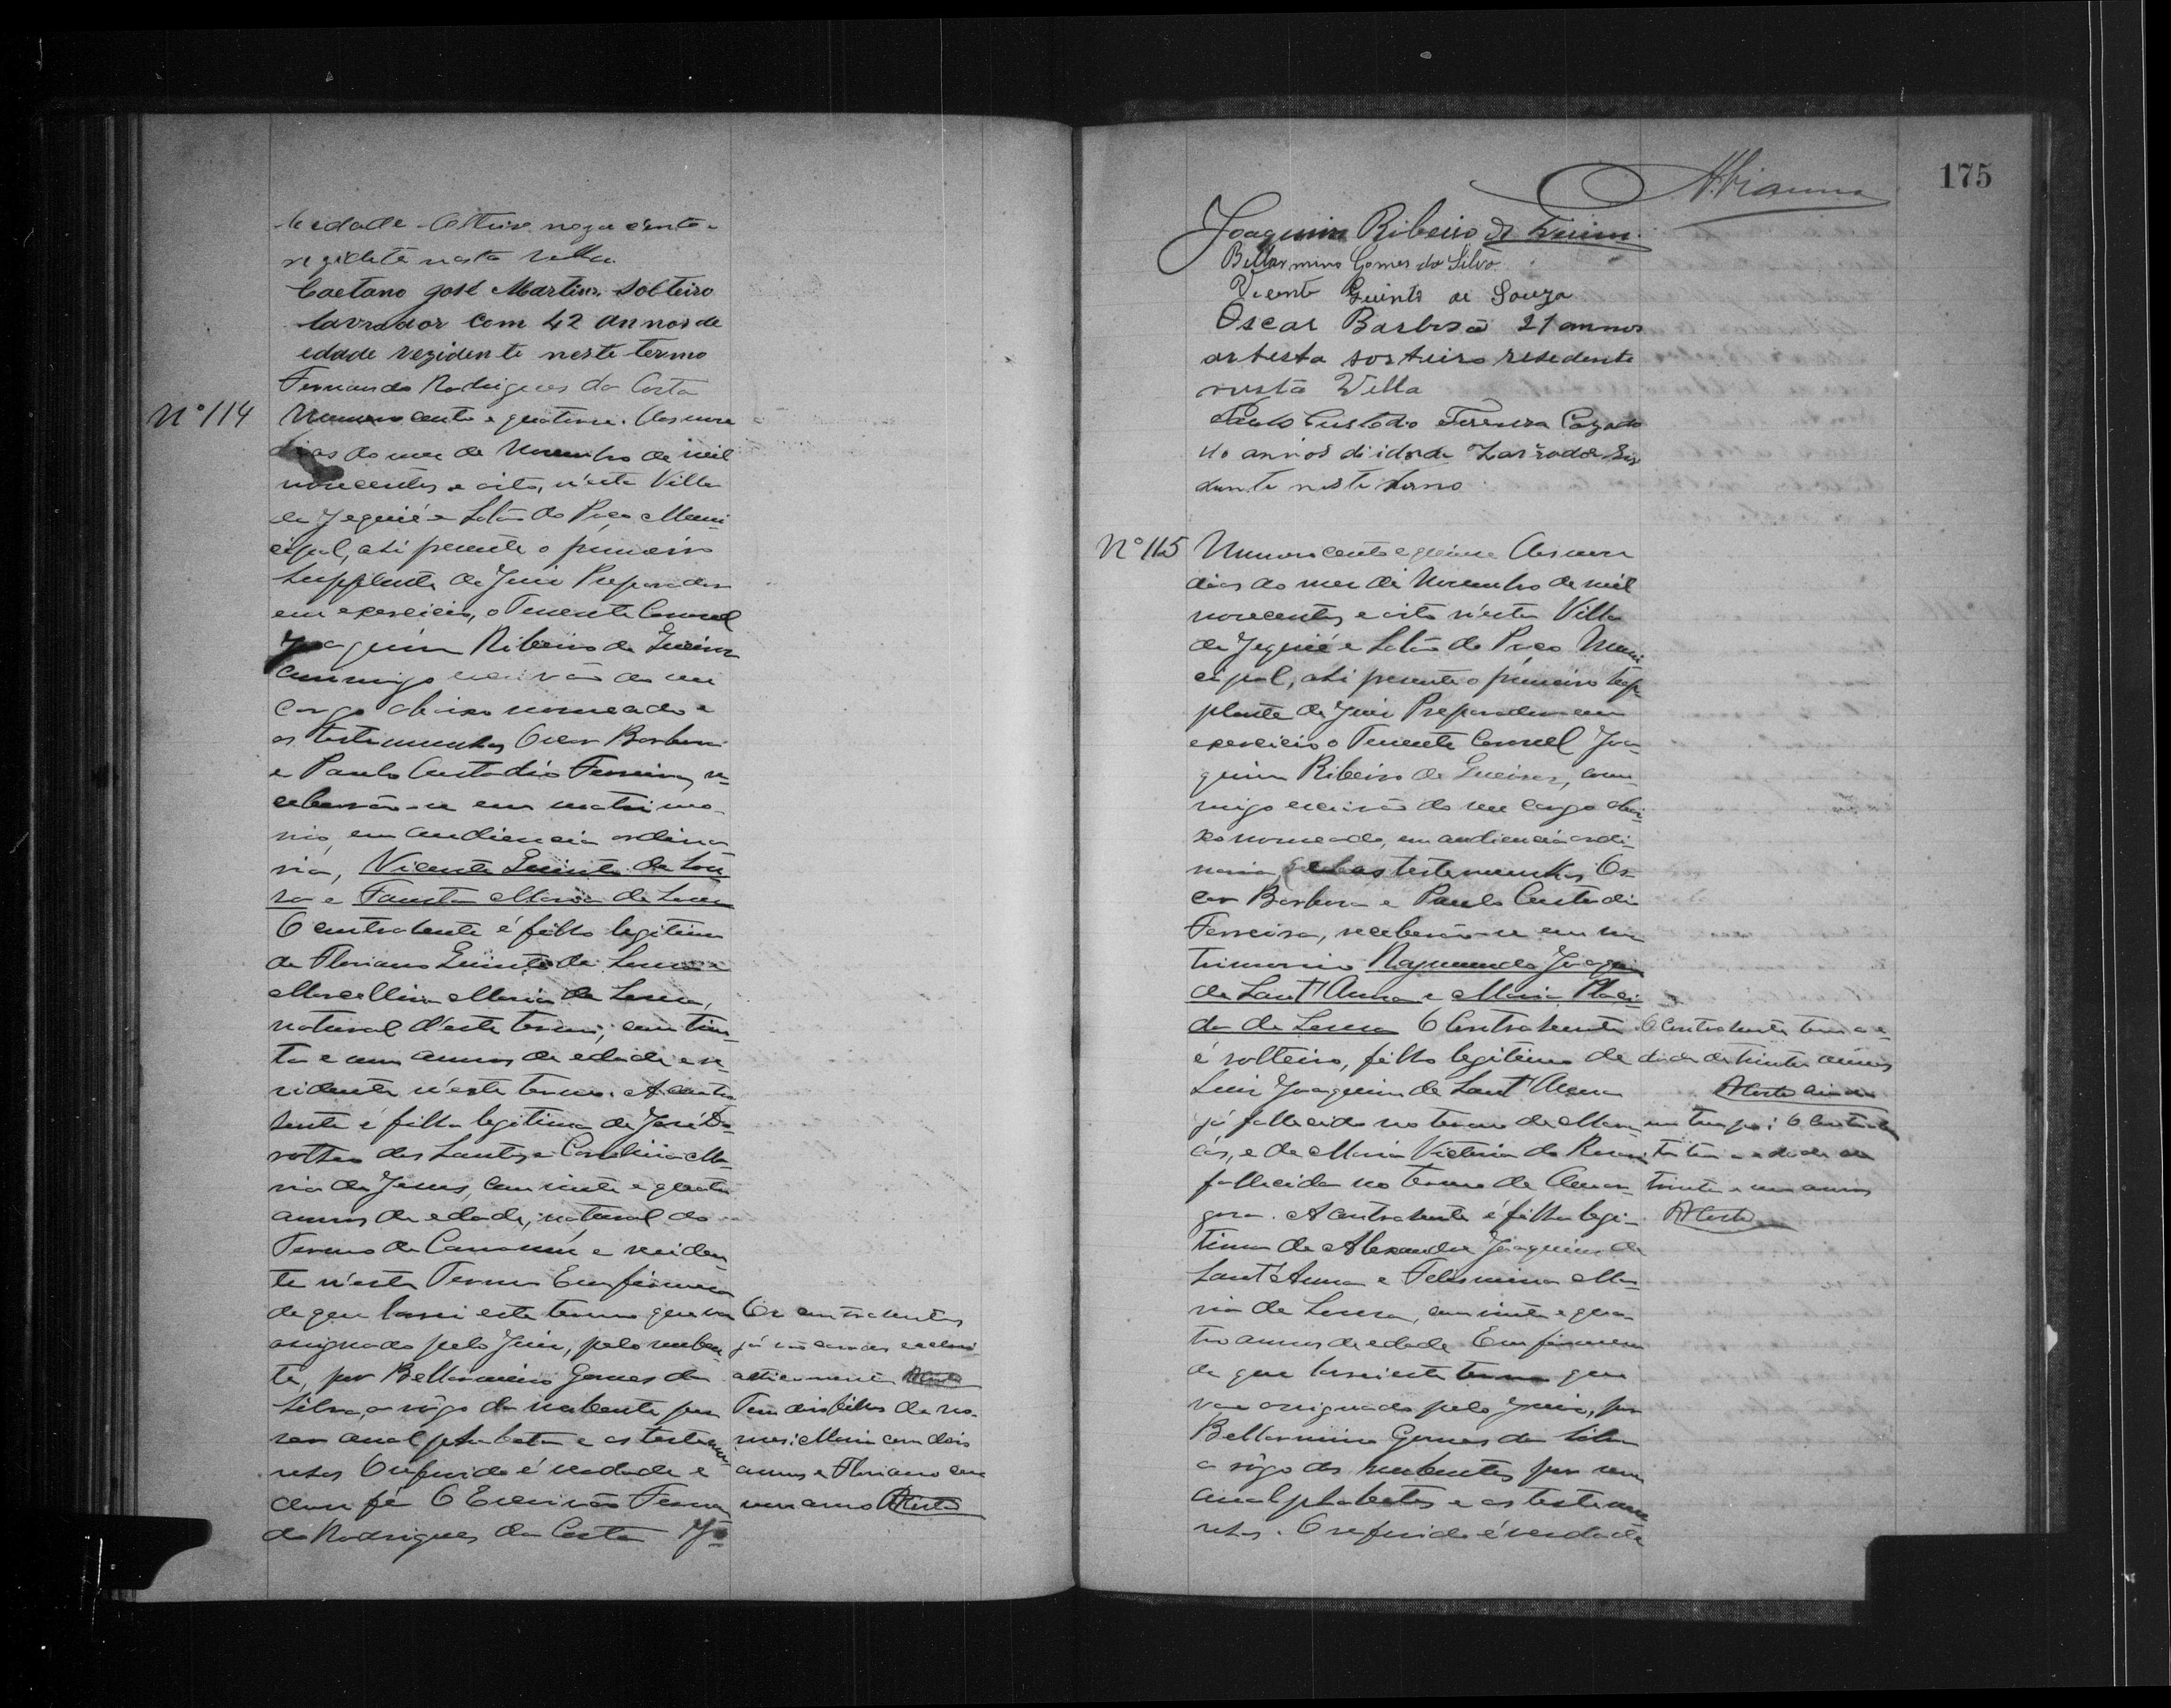 de edade solteiro negociante
rezidete nesta villa
Caetano José Martins solteiro
lavrador com 42 annos de
edade rezidente neste termo
Fernando Rodrigues da Costa
Nº 114
Numero cento e quatorze. Aos nove
dias do mez de Novembro de mil
novecentos e oito, n'esta Villa
de Jequié e Salão do Paço Muni
cipal, ahi presente o primeiro
Supplente de Juiz Preparador
em exercicio, o Tenente Coronel
Joaquim Ribeiro de
commigo escrivão do seu
cargo abaixo nomeado e
as testemunhas Oscar Barbosa
e Paulo Custodio Ferreira, re
ceberão-se em matrimo
nio, em audiencia ordina
ria, Vicente Quinto de Sou
za e Fausta Maria de Jesus
O contrahente é filho legitimo
de Floriano Quinto de Souza e
Marcellina Maria de Jesus,
natural d'este termo, com trin
ta e um annos de edade e re
zidente n'este termo. A contra
hente é filha legitima de José Do
rotheo dos Santos e Carolina Ma
ria de Jesus, com vinte e quatro
annos de edade, natural do
Termo de e residen
te n'este Termo Em firmeza
de que lavrei este termo que vai
assignado pelo Juiz, pelo nuben
te, por Bellarmino Gomes da
Silva, a rôgo da nubente por
ser analphabeta e as testemu
nhas O referido é verdade e
dou fé O Escrivão Fernan
do Rodrigues da Costa Jº
Os contrahentes
já são casados ecclesi
asticamente
Tem dois filhos de no
mes: Maria com dois
annos e Floriano com
um anno RCosta
175
Vianna
Joaquim Ribeiro de
Bellarmino Gomes da Silva
Vicente Quinto de Souza
Oscar Barbosa 21 annos
artesta sorteiro resedente
nesta Villa
Paulo Custodio Fereira Cazado
40 annos di idade Larrador Rezi
dente neste termo
Nº 115
Numero cento e quinze Aos nove
dias do mez de Novembro de mil
novecentos e oito n'esta Villa
de Jequié e Salão do Paço Muni
cipal, ahi presente o primeiro sup
plente de Juiz Preparador em
exercicio o Tenente Coronel Joa
quim Ribeiro de com
migo escrivão do seu cargo abai
xo nomeado, em audiencia ordi
naria, e as testemunhas Os
car Barbosa e Paulo Custodio
Ferreira, receberão-se em ma
trimonio Raymundo Joaquim
de Sant'Anna e Maria Placi
da de Jesus O Contrahente
é solteiro, filho legitimo de
Luiz Joaquim de Sant'Anna
já fallecido no termo de Mara
cás, e de Maria Victoria do
fallecida no termo de Amar
gosa. A contrahente é filha legi
tima de Alexandre Joaquim de
Sant'Anna e Felismina Ma
ria de Jesus, com vinte e qua
tro annos de edade Em firmeza
de que lavrei este termo que
vai assignado pelo Juiz, por
Bellarmino Gomes da Silva
a rôgo dos nubentes por serem
analphabetos e as testemu
nhas. O referido é verdade
O Contrahente tem a e
dade de trinta annos
RCosta
em tempo: O Contrahen
te tem a edade de
trinta e um annos
RCosta